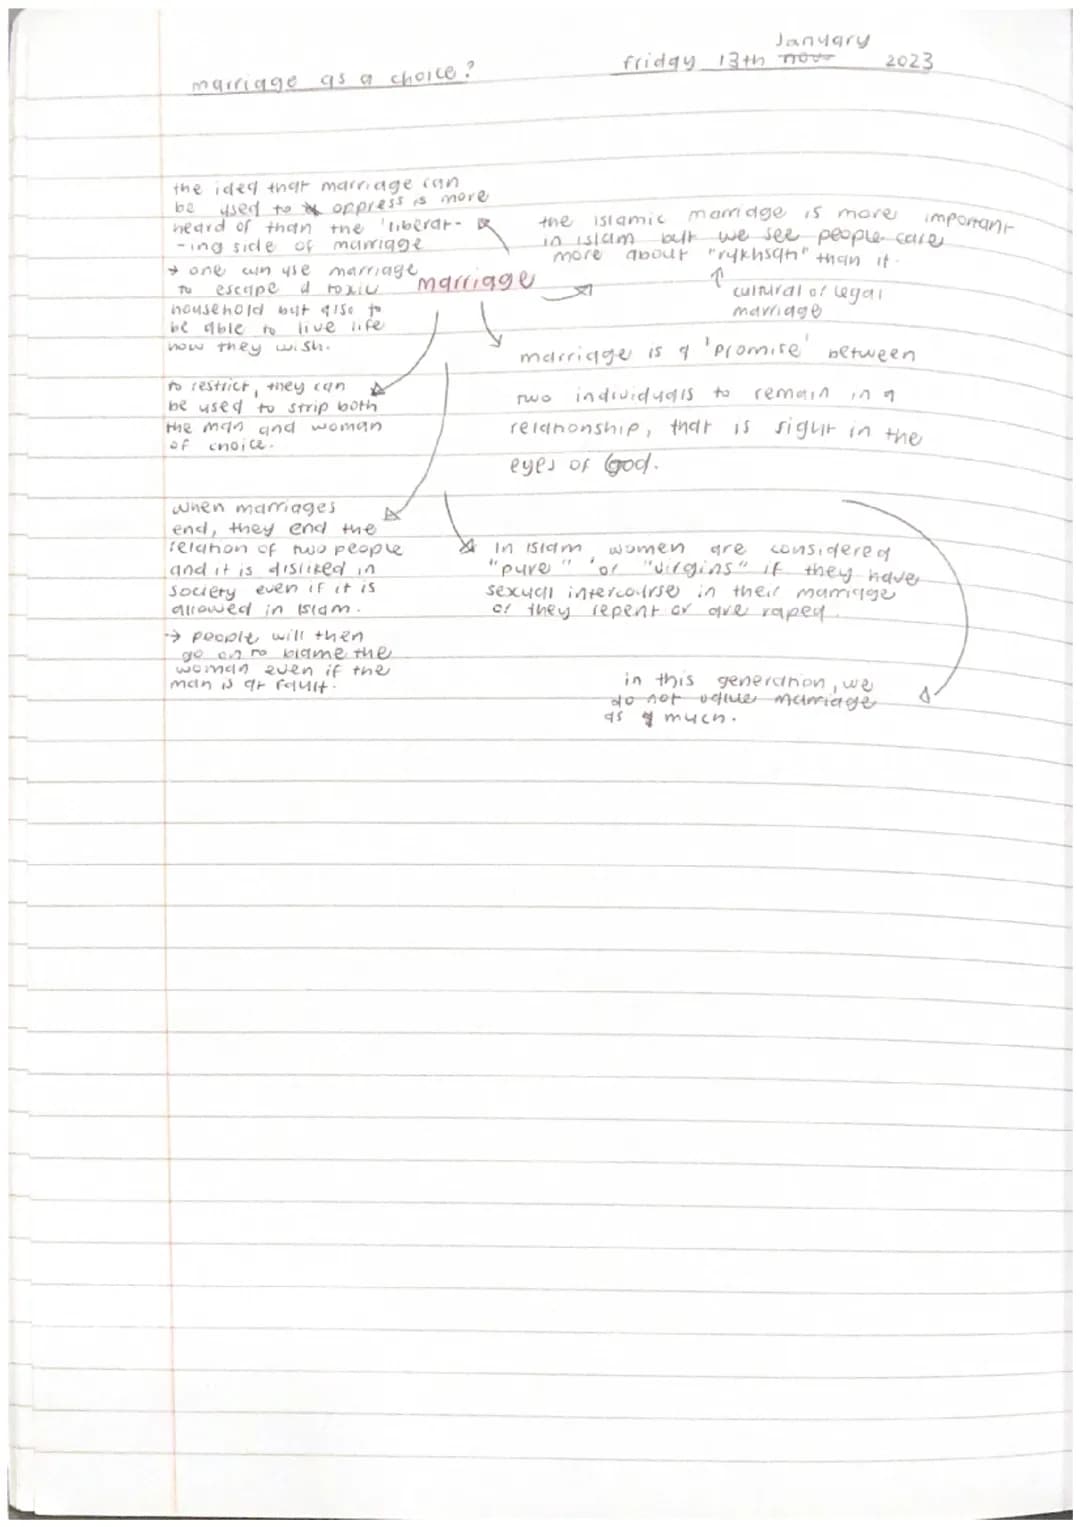 January
friday 13th nov 2023
marriage as a choice?
the idea that marriage can
be used to oppress is more
heard of than the 'liberat-
-ing side of marriage
→ one can use marriage
to escape a toxic
household but also to
be able to live life
how they wish.
marriage
the islamic marriage is more important
in islam but we see people care
more about "rukhsati" than it.
↑
cultural or legal
marriage
marriage is a 'promise' between
two individuals to remain in a
relationship, that is right in the
eyes of God.
to restrict, they can
be used to strip both
the man and woman
of choice.
when marriages
end, they end the
relation of two people
and it is disliked in
society even if it is
allowed in islam.
→ people will then
go on to blame the
woman even if the
man is at fault.
In islam, women are considered
"pure" or "virgins" if they have
sexual intercourse in their marriage
or they repent or are raped.
in this generation, we
do not value marriage
as much.